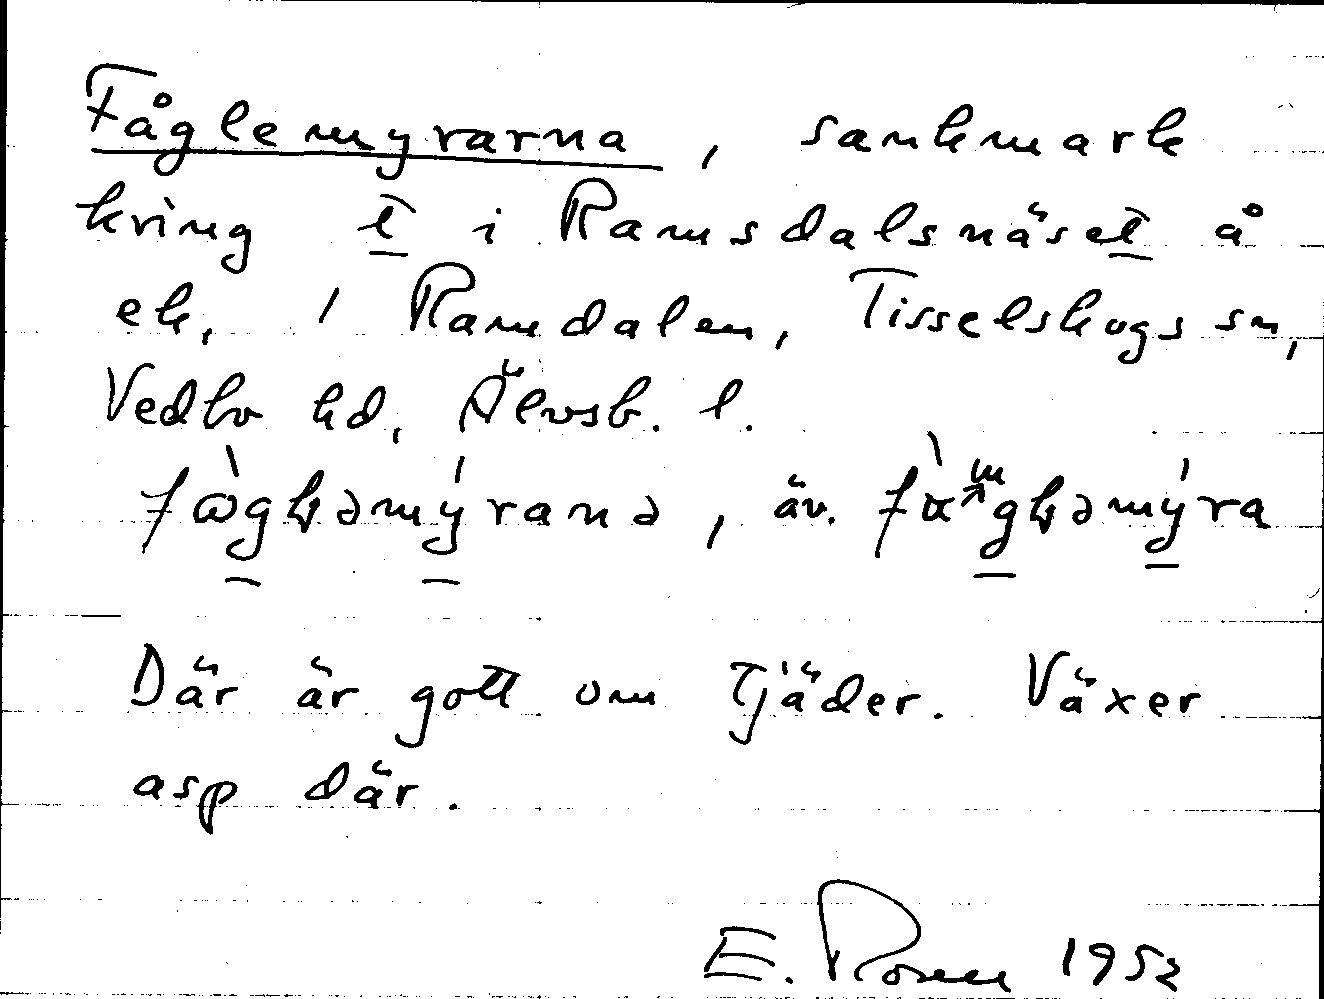 Fåglemyrarna, sankmark
kring t i Ramsdalsnäset å
ek. 1 Ramdalen, Tisselskogs sn,
Vedbo hd, Älvsb. l.
Där är gott om Tjäder. Växer
asp där.
E. Rosen 1952